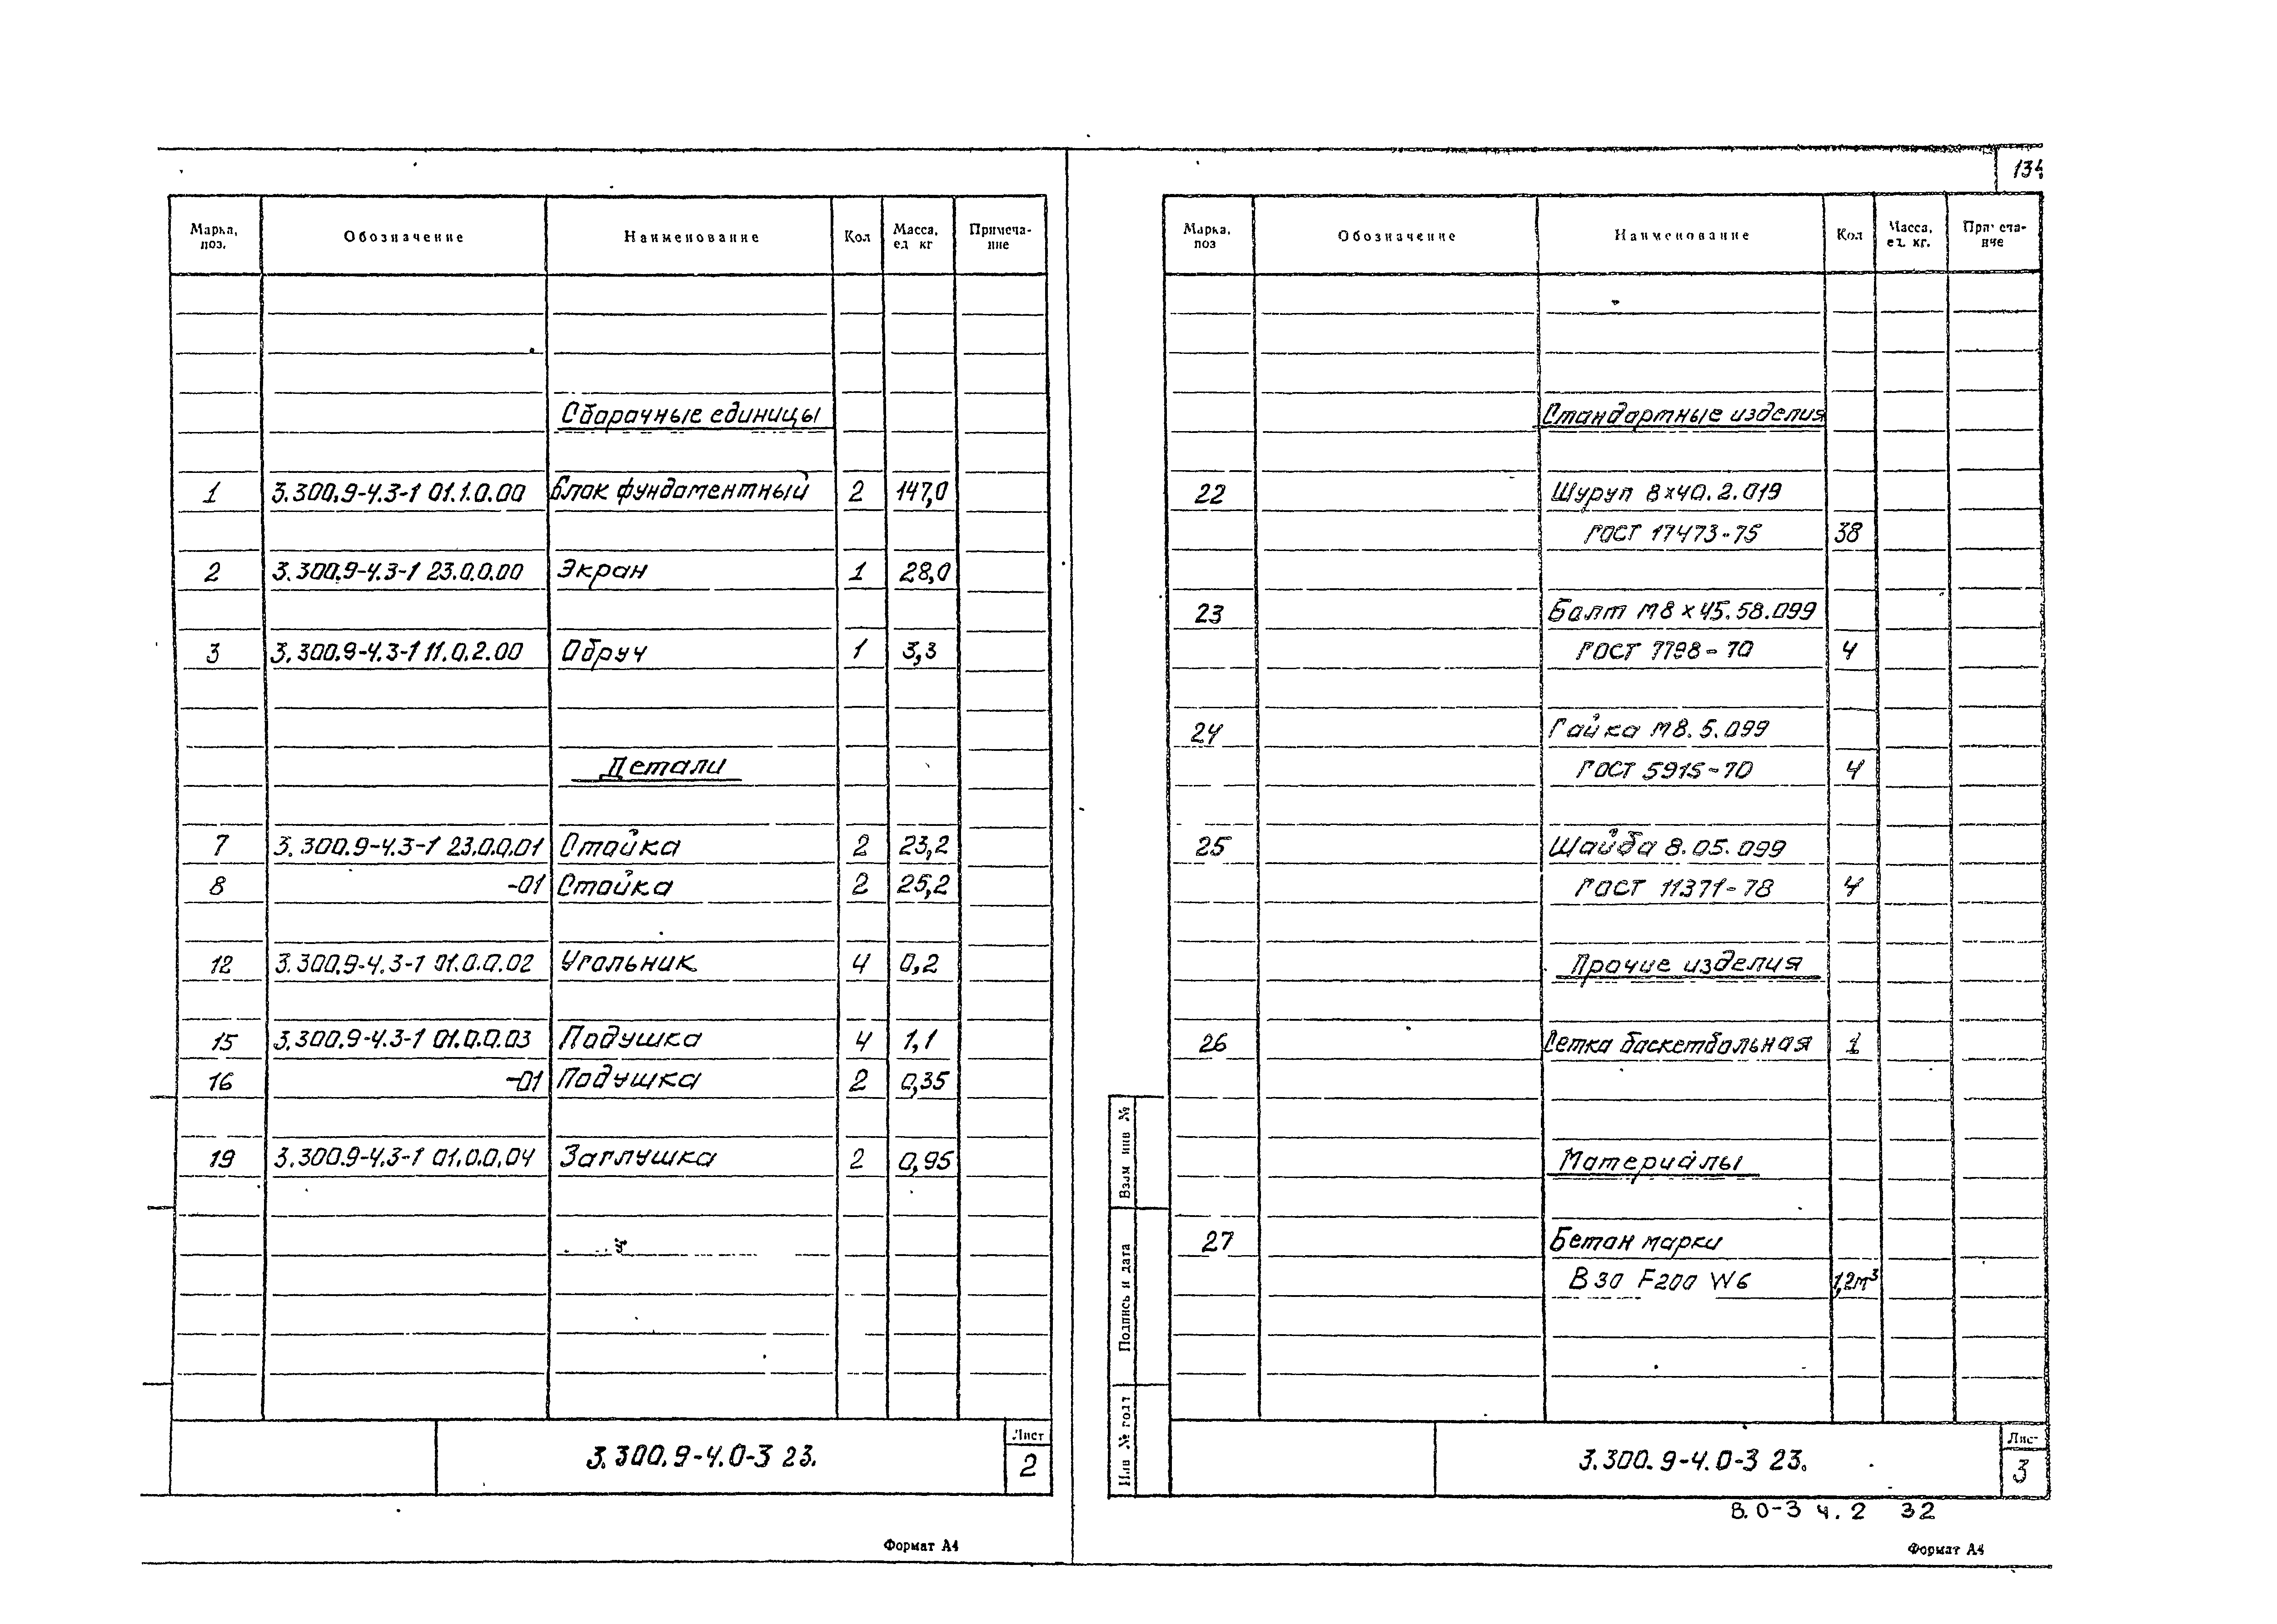 134
Марка, поз. Обозначение Наименование Кол Масса, ед кг Примечание
Сборочные единицы
1 3.300.9-4.3-1 01.1.0.00 Блок фундаментный 2 147,0
2 3.300.9-4.3-1 23.0.0.00 Экран 1 28,0
3 3.300.9-4.3-1 11.0.2.00 Обруч 1 3,3
Детали
7 3.300.9-4.3-1 23.0.0.01 Стойка 2 23,2
8 -01 Стойка 2 25,2
12 3.300.9-4.3-1 01.0.0.02 Угольник 4 0,2
15 3.300.9-4.3-1 01.0.0.03 Подушка 4 1,1
16 -01 Подушка 2 0,35
19 3.300.9-4.3-1 01.0.0.04 Заглушка 2 0,95
3.300.9-4.0-3 23.
Лист
2
Формат А4
Марка, поз Обозначение Наименование Кол Масса, ед. кг. Примечание
Стандартные изделия
22 Шуруп 8×40.2.019
ГОСТ 17473-75 38
23 Болт М8×45.58.099
ГОСТ 7798-70 4
24 Гайка М8.5.099
ГОСТ 5915-70 4
25 Шайба 8.05.099
ГОСТ 11371-78 4
Прочие изделия
26 Сетка баскетбольная 1
Материалы
27 Бетон марки
В30 F200 W6 1,2м³
Взам инв №
Подпись и дата
Инв № подл
3.300.9-4.0-3 23.
Лист
3
8.0-3 ч.2 32
Формат А4